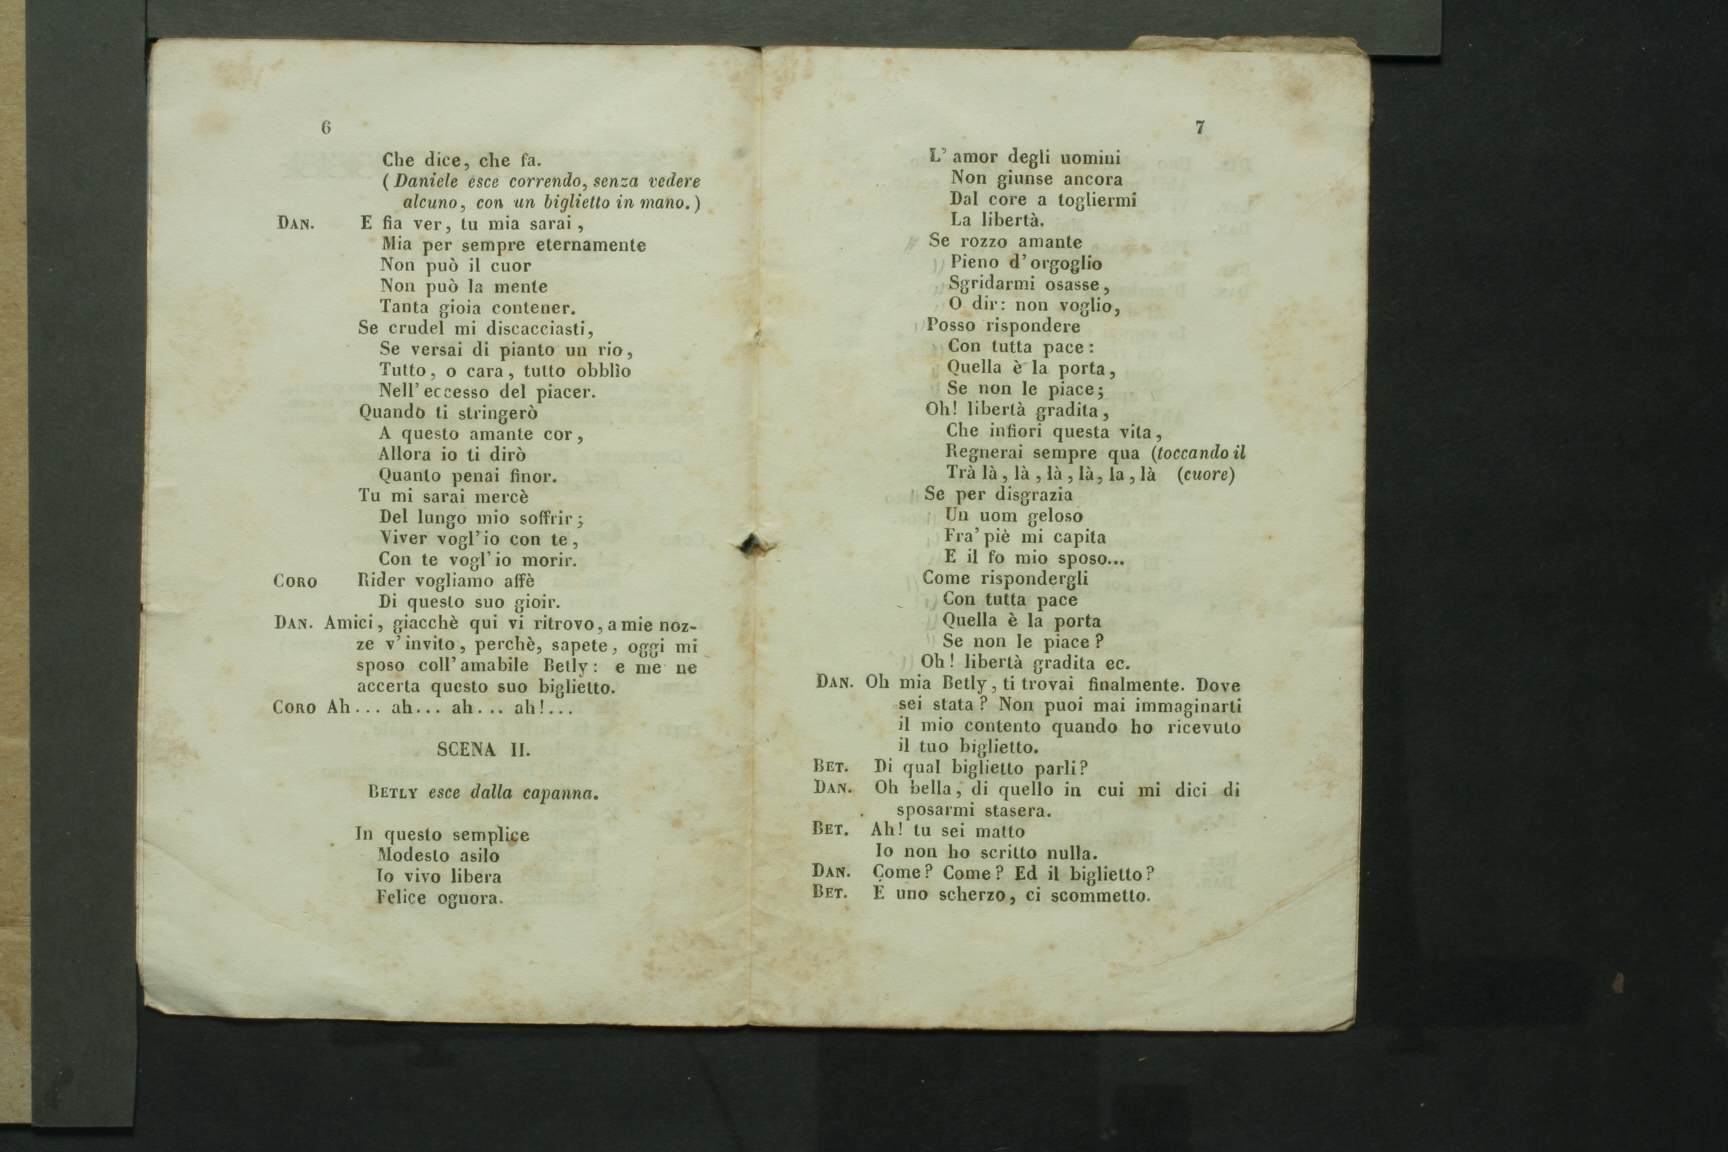 6
Che dice, che fa.
(Daniele esce correndo, senza vedere
alcuno, con un biglietto in mano.)
DAN. E fia ver, tu mia sarai,
Mia per sempre eternamente
Non può il cuor
Non può la mente
Tanta gioia contener.
Se crudel mi discacciasti,
Se versai di pianto un rio,
Tutto, o cara, tutto obblìo
Nell' eccesso del piacer.
Quando ti stringerò
A questo amante cor,
Allora io ti dirò
Quanto penai finor.
Tu mi sarai mercè
Del lungo mio soffrir;
Viver vogl' io con te,
Con te vogl' io morir.
CORO Rider vogliamo affè
Di questo suo gioir.
DAN. Amici, giacchè qui vi ritrovo, a mie noz-
ze v' invito, perchè, sapete, oggi mi
sposo coll' amabile Betly: e me ne
accerta questo suo biglietto.
CORO Ah... ah... ah... ah!...
SCENA II.
BETLY esce dalla capanna.
In questo semplice
Modesto asilo
Io vivo libera
Felice ognora.
7
L' amor degli uomini
Non giunse ancora
Dal core a togliermi
La libertà.
Se rozzo amante
Pieno d' orgoglio
Sgridarmi osasse,
O dir: non voglio,
Posso rispondere
Con tutta pace:
Quella è la porta,
Se non le piace;
Oh! libertà gradita,
Che infiori questa vita,
Regnerai sempre qua (toccando il
Trà là, là, là, là, la, là (cuore)
Se per disgrazia
Un uom geloso
Fra' piè mi capita
E il fo mio sposo...
Come rispondergli
Con tutta pace
Quella è la porta
Se non le piace?
Oh! libertà gradita ec.
DAN. Oh mia Betly, ti trovai finalmente. Dove
sei stata? Non puoi mai immaginarti
il mio contento quando ho ricevuto
il tuo biglietto.
BET. Di qual biglietto parli?
DAN. Oh bella, di quello in cui mi dici di
sposarmi stasera.
BET. Ah! tu sei matto
Io non ho scritto nulla.
DAN. Come? Come? Ed il biglietto?
BET. È uno scherzo, ci scommetto.